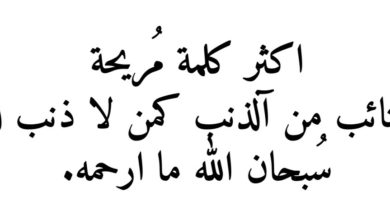 اكثر كلمة مُريحة
من آلذنب كمن لا ذنب
سُبحان الله ما ارحمه.